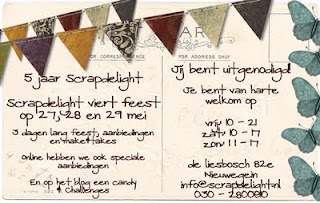 CARD
FOR CORRESPONDENCE
FOR ADDRESS ONLY
5 jaar Scrapdelight
Scrapdelight viert feest
op 27, 28 en 29 mei
3 dagen lang feest, aanbiedingen
en make+takes
online hebben we ook speciale
aanbiedingen
En op het blog een candy
+ challenges
Jij bent uitgenodigd!
Je bent van harte
welkom op
vrij 10 - 21
zat 10 - 17
zon 11 - 17
de liesbosch 82e
Nieuwegein
info@scrapdelight.nl
030 - 2800810